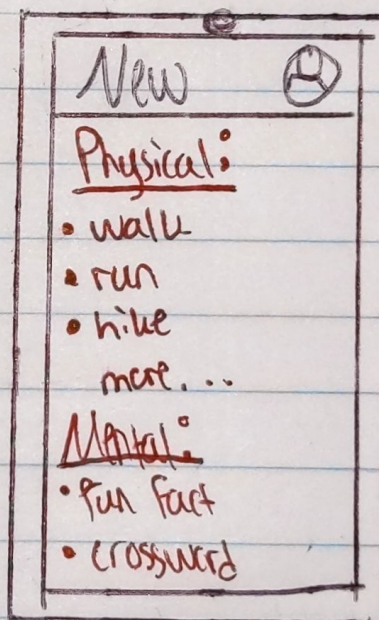 New
Physical:
• walk
• run
• hike
more...
Mental:
• fun fact
• crossword